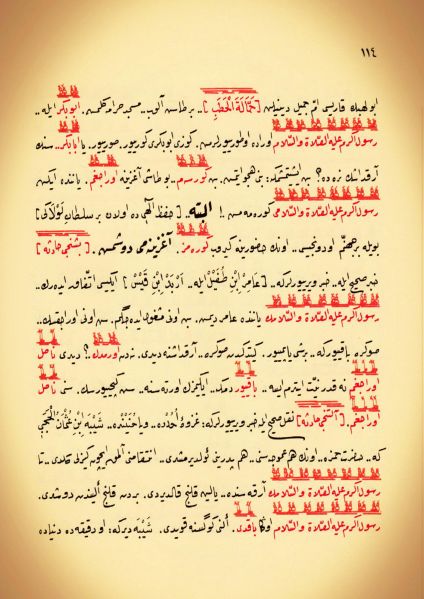 ١١٤
ابو لهبك قاریسی امّ جمیل دینیلن [حَمَّالَةَ الْحَطَبِ].. بر طاش آلوب.. مسجد حرامه كلمش. ابوبكر ایله..
رسول اكرم علیه الصلاة والسلام اوراده اوطورییورلرمش. كوزی ابوبكری كورییور. صورییور. یا ابابكر.. سنك
آرقداشك نره ده؟ بن ایشیتمشم كه: بنی هجو ایتمش. بن كورسه م.. بو طاشی آغزینه اوراجغم. یاننده ایكن
رسول اكرم علیه الصلاة والسلامی كوره مه مش! البته [حفظ الهی ده اولان بر سلطان لَوْلَاكی]
بویله بر جهنّم اودونجیسی.. اونك حضورینه كیروب كوره مز. آغزینه می دوشمش. [بشنجی حادثه]
خبر صحیح ایله.. خبر ویرییورلر كه.. [عَامِرِ ابْنِ طُفَیْل ایله.. اَرْبَدَ ابْنِ قَیْسْ] ایكیسی اتّفاق ایده رك..
رسول اكرم علیه الصلاة والسلامك یاننده عامر دیمش. بن اونی مشغول ایده جگم. سن اونی اوراجقسك..
صوكره باقییور كه.. بر شی یاپمییور. كیتدكدن صوكره.. آرقداشنه دیدی. نه دن اورمدك..؟ دیدی ناصل
اوراجغم نه قدر نیّت ایتدم ایسه.. باقییورم كه.. ایكیمزك اورته سنه.. سن كچییورسك. سنی ناصل
اوراجغم.. [آلتنجی حادثه] نقل صحیح ایله خبر ویرییورلر كه: غزوۀ اُحُدده.. ویا حُنَیْنده.. شَیْبَه ابْنِ عُثْمَانُ الْحَجَبِی
كه.. حضرت حمزه.. اونك هم عموجه سنی.. هم پدرینی ئولدیرمشدی.. انتقامنی آلمق ایچون كیزلی كلدی.. تا
رسول اكرم علیه الصلاة والسلامك آرقه سنده.. یالین قلنج قالدیردی. بردن قلنج الیندن دوشدی.
رسول اكرم علیه الصلاة والسلام اوكا باقدی. الینی كوگسنه قویدی. شَیْبَه دیر كه: او دقیقه ده دنیاده